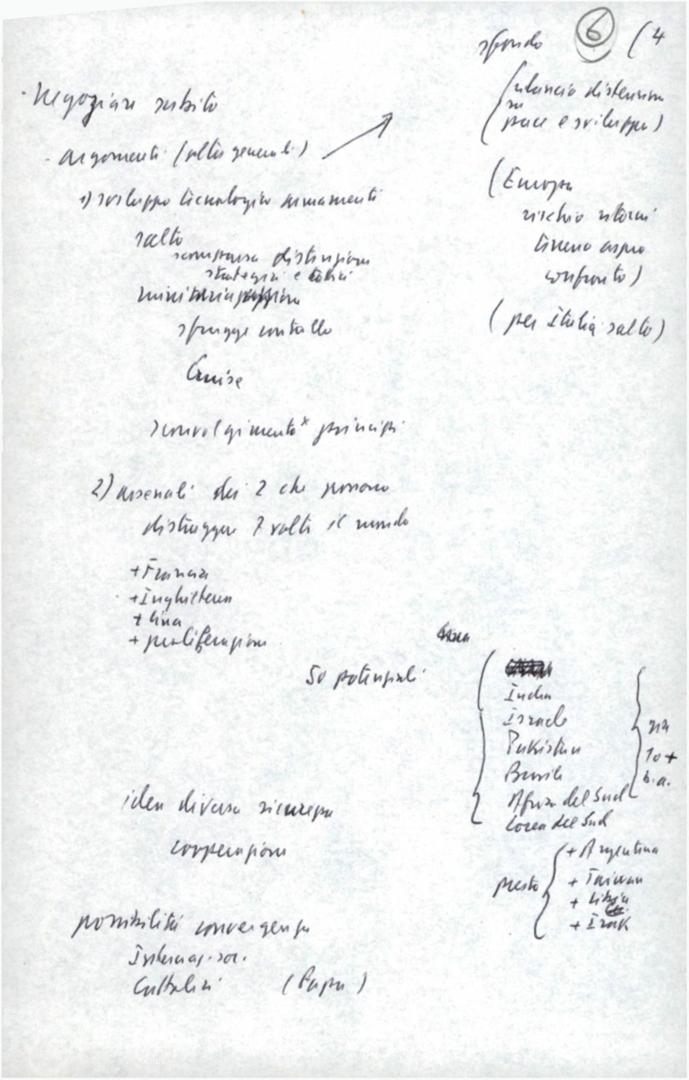 6 (4
sfondo
(rilancio distensione
pace e sviluppo)
· Negoziare subito
- argomenti (oltre generali)
1) sviluppo tecnologico armamenti
salto
scomparsa distinzione
strategici e tattici
miniaturizzazione
sfugge controllo
Cruise
sconvolgimento principi
(Europa
rischio ritorni
terreno aspro
confronto)
(per Italia salto)
2) arsenali dei 2 che possono
distruggere 7 volte il mondo
+ Francia
+ Inghilterra
+ Cina
+ proliferazione
50 potenziali
India
Israele
Pakistan
Brasile
Africa del Sud
Corea del Sud
già
1 o +
b.a.
presto
+ Argentina
+ Taiwan
+ Libia
+ Irak
idea diversa sicurezza
cooperazione
possibilità convergenza
Internaz. soc.
Cattolici (Papa)